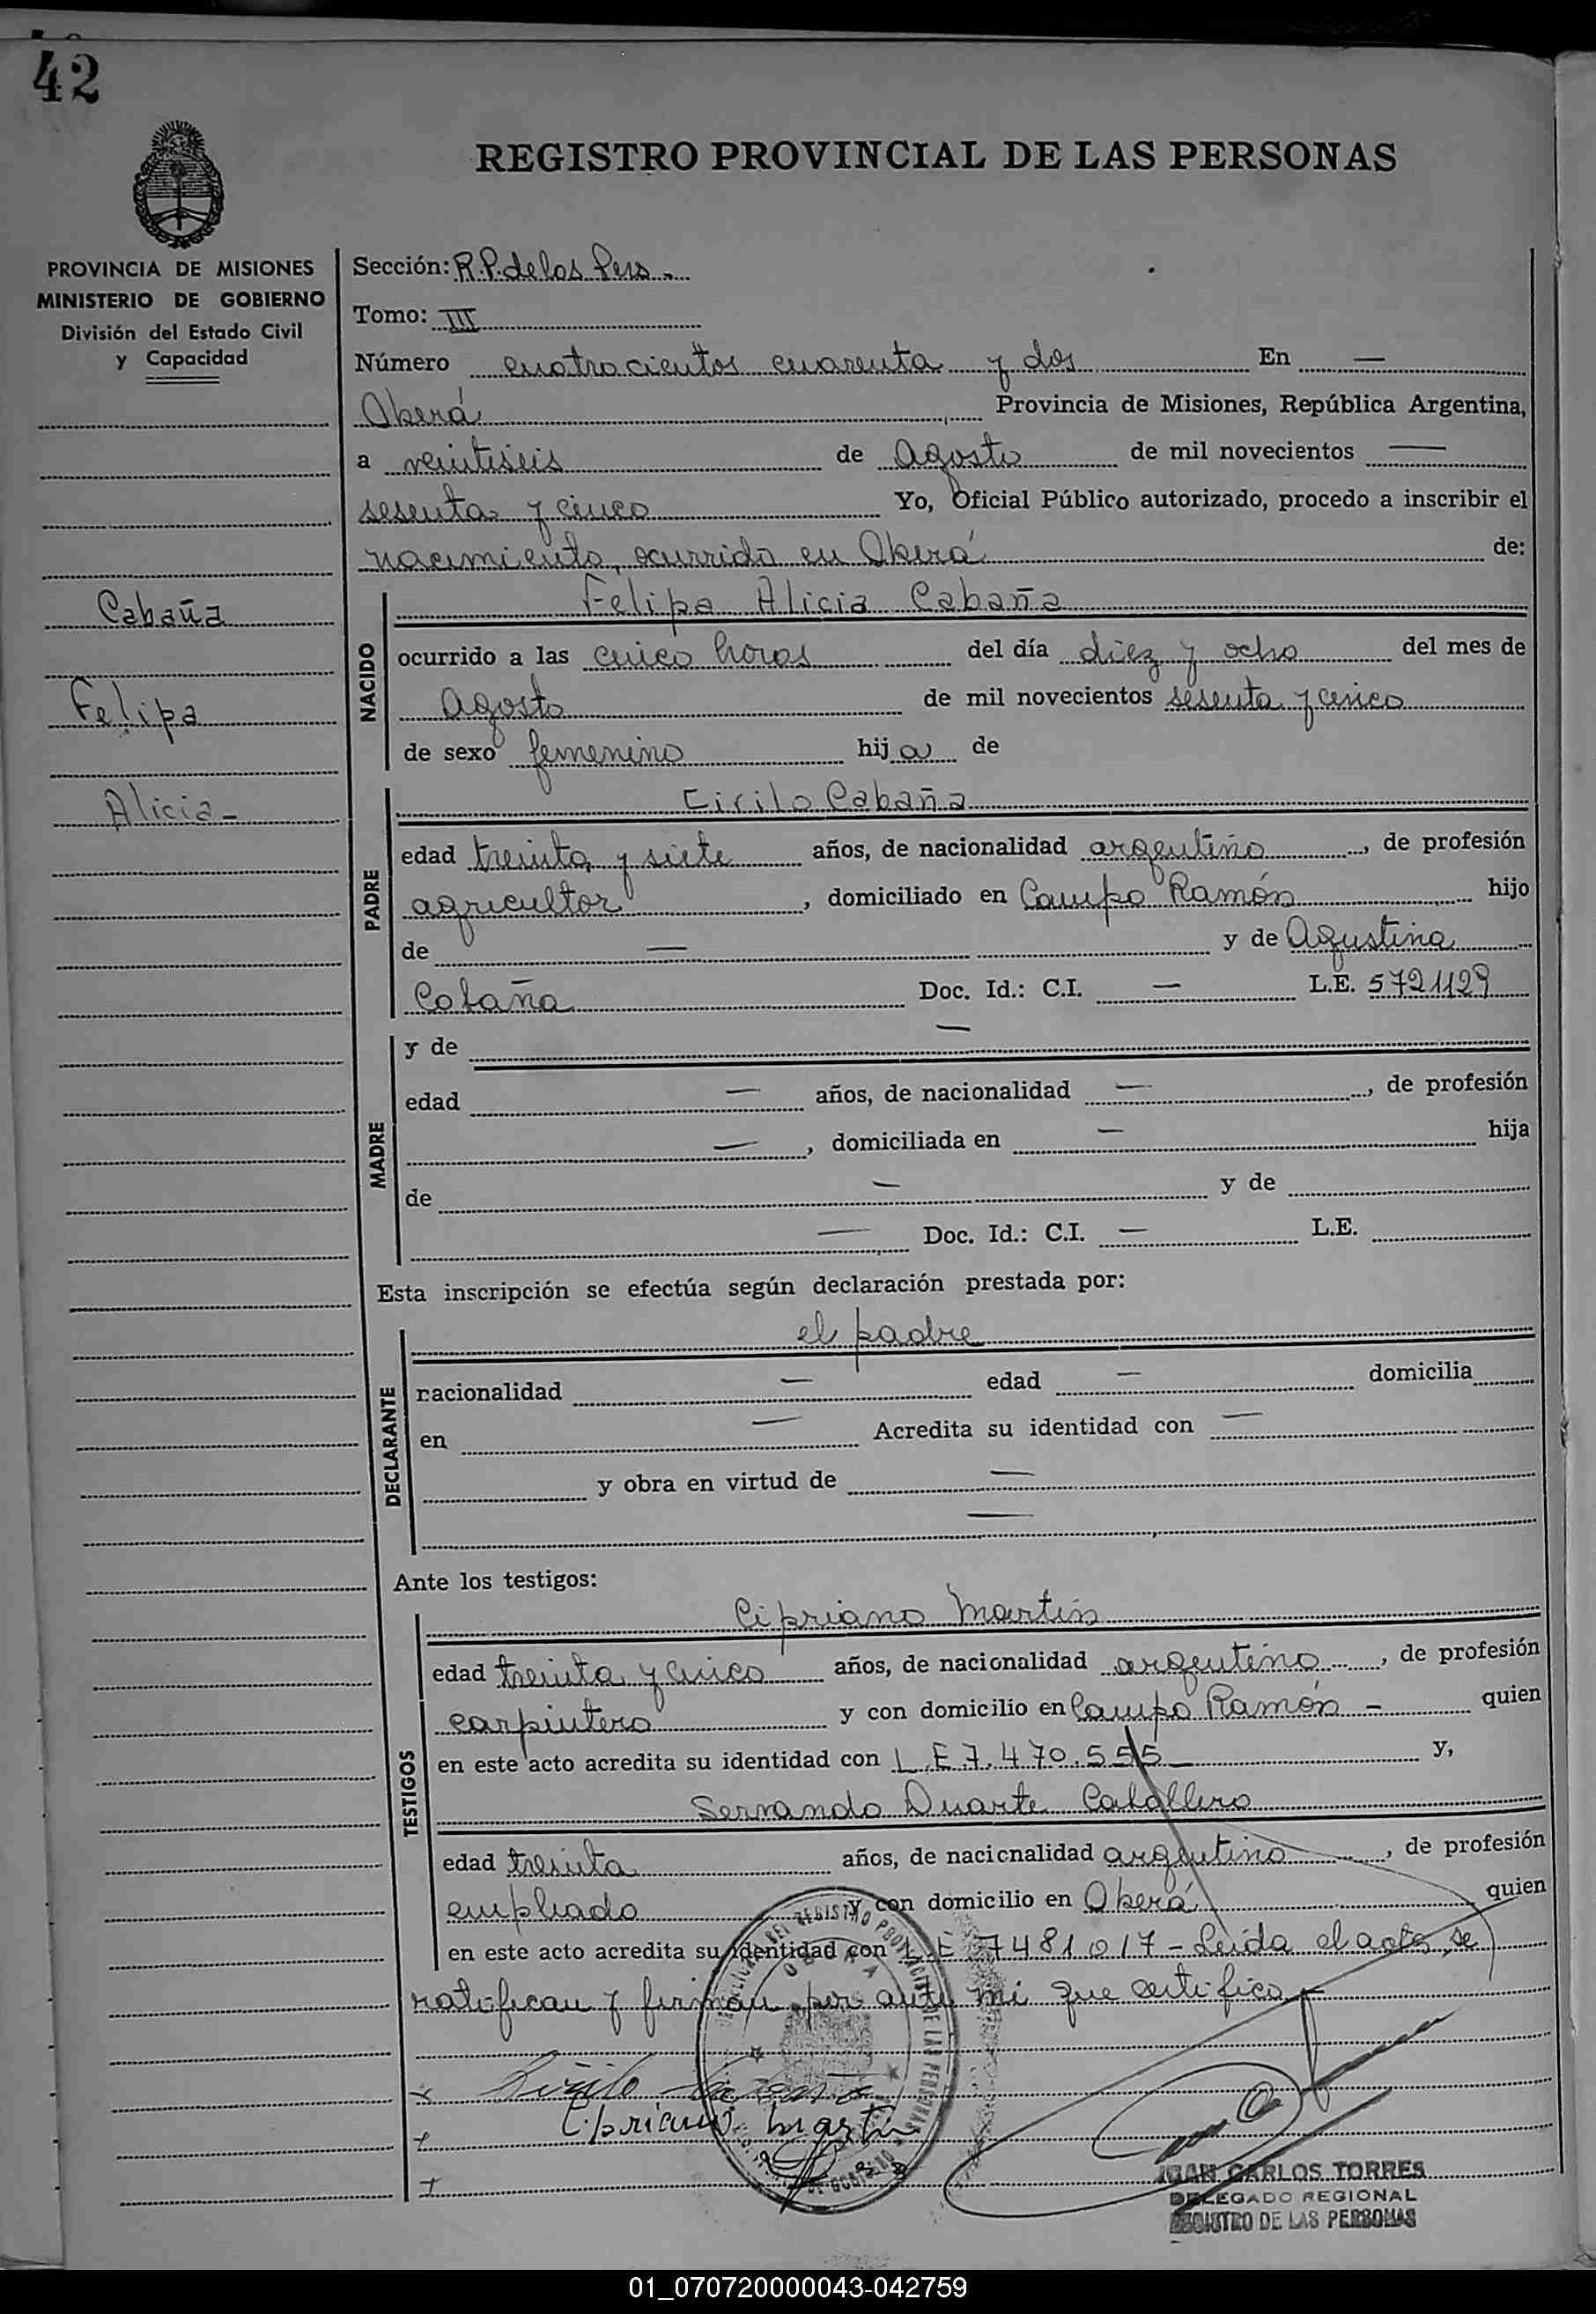 42
REGISTRO PROVINCIAL DE LAS PERSONAS
PROVINCIA DE MISIONES
MINISTERIO DE GOBIERNO
División del Estado Civil
y Capacidad
Cabaña
Felipa
Alicia-
Sección: R.P. de las Pers.
Tomo: III
Número cuatrocientos cuarenta y dos En —
Oberá Provincia de Misiones, República Argentina,
a veintiseis de Agosto de mil novecientos —
sesenta y cinco Yo, Oficial Público autorizado, procedo a inscribir el
nacimiento, ocurrido en Oberá de:
NACIDO
Felipa Alicia Cabaña
ocurrido a las cinco horas del día diez y ocho del mes de
Agosto de mil novecientos sesenta y cinco
de sexo femenino hija de
PADRE
Cirilo Cabaña
edad treinta y siete años, de nacionalidad argentino, de profesión
agricultor, domiciliado en Campo Ramón hijo
de — y de Agustina
Cabaña Doc. Id.: C.I. — L.E. 5721129
MADRE
y de —
edad — años, de nacionalidad —, de profesión
—, domiciliada en — hija
de — y de
— Doc. Id.: C.I. — L.E.
Esta inscripción se efectúa según declaración prestada por:
DECLARANTE
el padre
nacionalidad — edad — domicilia
en — Acredita su identidad con —
y obra en virtud de —
—
Ante los testigos:
TESTIGOS
Cipriano Martin
edad treinta y cinco años, de nacionalidad argentino, de profesión
carpintero y con domicilio en Campo Ramón - quien
en este acto acredita su identidad con L.E 7.470.555 y,
Servando Duarte Caballero
edad treinta años, de nacionalidad argentino, de profesión
empleado y con domicilio en Oberá quien
en este acto acredita su identidad con L.E 7481017- Leida el acta, se
ratifican y firman por ante mi que certifico
Cirilo Cabaña
Cipriano Martin
OBERA
JUAN CARLOS TORRES
DELEGADO REGIONAL
REGISTRO DE LAS PERSONAS
01_070720000043-042759